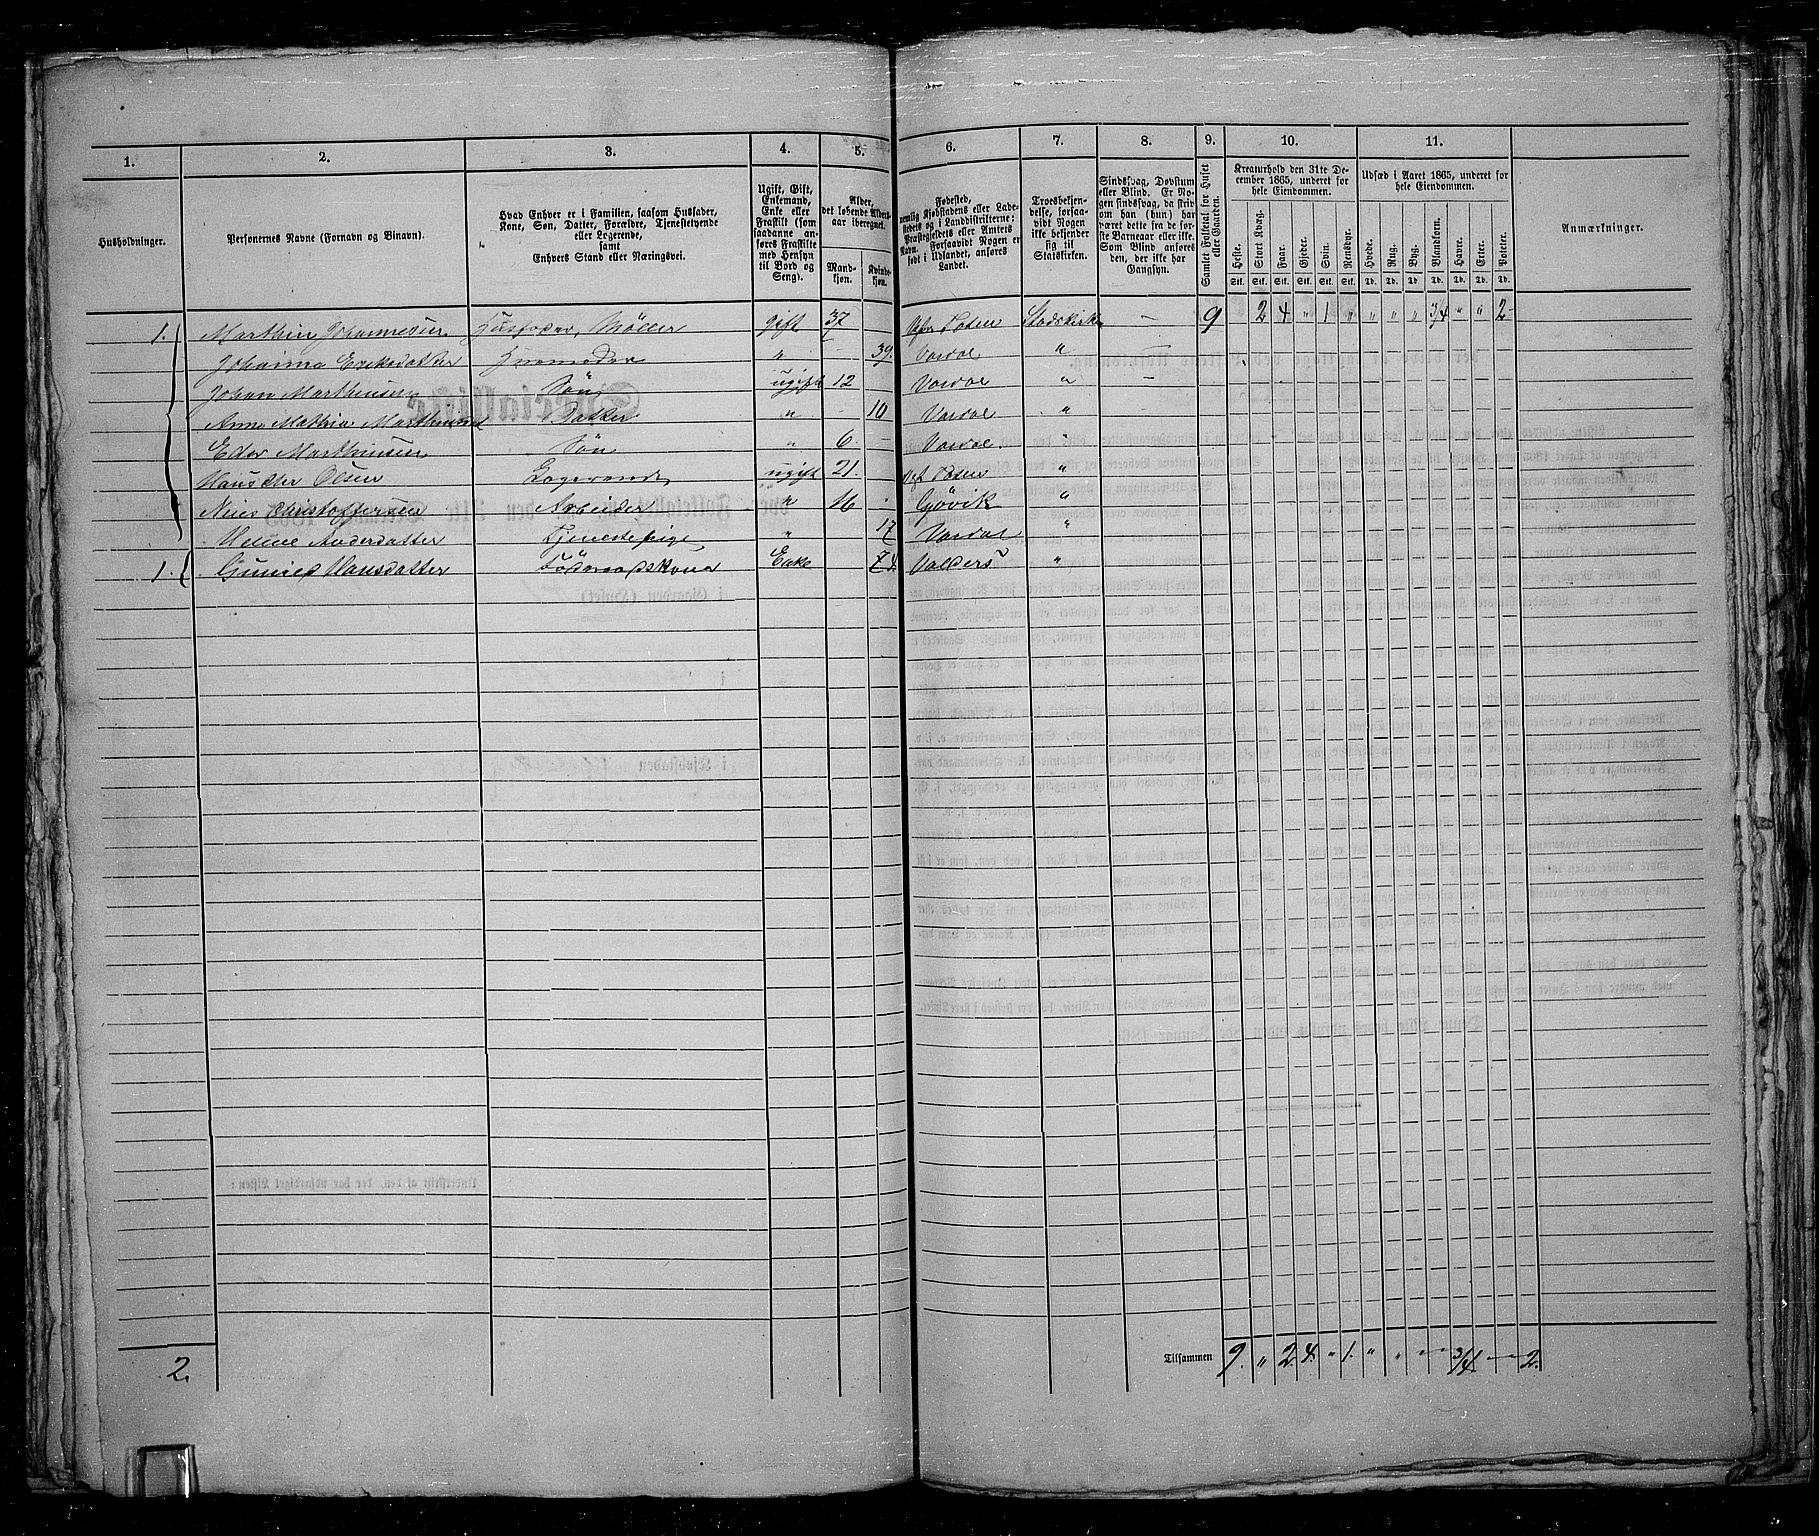 1. 2. 3. 4. 5. 6. 7. 8. 9. 10. 11.
Husholdninger.
Personernes Navne (Fornavn og Binavn).
Hvad Enhver er i Familien, saasom Husfader, Kone, Søn, Datter, Forældre, Tjenestetyende eller Logerende, samt Enhvers Stand eller Næringsvei.
Ugift, Gift, Enkemand, Enke eller Fraskilt (som saadanne anføres Fraskilte med Hensyn til Bord og Seng).
Alder, det løbende Aldersaar iberegnet.
Mandkjøn. Kvindekjøn.
Fødested, nemlig Kjøbstadens eller Ladestedets og i Landdistrikterne: Præstegjeldets eller Amtets Navn. Forsaavidt Nogen er født i Udlandet, anføres Landet.
Troesbekjendelse, forsaavidt Nogen ikke bekjender sig til Statskirken.
Sindssvag, Døvstum eller Blind. Er Nogen sindssvag, da skrives om han (hun) har været dette fra de første Barneaar eller ikke. Som Blind anføres den, der ikke har Gangsyn.
Samlet Folketal for Huset eller Gaarden.
Kreaturhold den 31te December 1865, underet for hele Eiendommen.
Heste. Stort Kvæg. Faar. Gjeder. Svin. Rensdyr.
Stk. Stk. Stk. Stk. Stk. Stk.
Udsæd i Aaret 1865, underet for hele Eiendommen.
Hvede. Rug. Byg. Blandkorn. Havre. Erter. Poteter.
Td. Td. Td. Td. Td. Td. Td.
Anmærkninger.
1. Marthin Johannesen Husfader, Möller gift 37 – Toten Statskirke – 9 2 4 " 1 " " " " 3/4 " " 2
Johanna Eriksdatter Huusmoder " – 39. Vardal " –
Johan Marthinsen Sön ugift 12 Vardal " –
Anne Mathia Marthinsd Datter " – 10 Vardal "
Marthinsen Sön " 6. – Vardal "
Olsen Logerende ugift 21. – Toten "
Christoffersen Arbeider " 16 – Gjövik "
Helene Andersdatter Tjenestepige " 17 Vardal "
1. Hansdatter Föderaadskone Enke 74. Valders "
2.
Tilsammen 9. " 2. 4. " 1. " " " 3/4. " " 2.